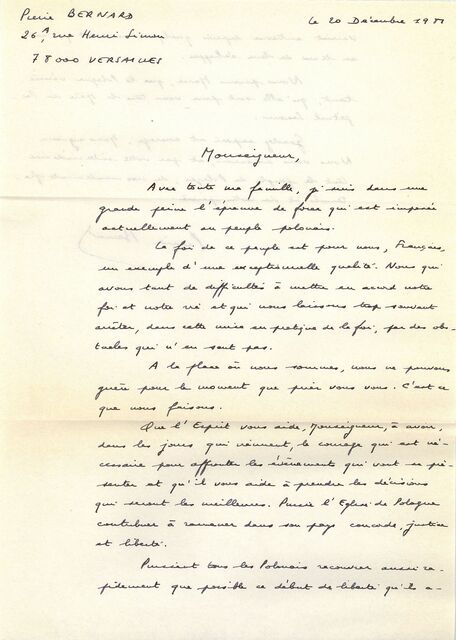 Pierre BERNARD
Le 20 Décembre 1981
26A, rue Henri Simon
78000 VERSAILLES
Monseigneur,
Avec toute ma famille, je suis dans une
grande peine l'épreuve de force qui est imposée
actuellement au peuple polonais.
La foi de ce peuple est pour nous, Français,
un exemple d'une exceptionnelle qualité. Nous qui
avons tant de difficultés à mettre en accord notre
foi et notre vie et qui nous laissons trop souvent
arrêter, dans cette mise en pratique de la foi, par des obs-
tacles qui n'en sont pas.
A la place où nous sommes, nous ne pouvons
guère pour le moment que prier pour vous. C'est ce
que nous faisons.
Que l'Esprit vous aide, Monseigneur, à avoir,
dans les jours qui viennent, le courage qui est né-
cessaire pour affronter les évènements qui vont se pré-
senter et qu'il vous aide à prendre les décisions
qui seront les meilleures. Puisse l'Eglise de Pologne
contribuer à ramener dans son pays concorde, justice
et liberté.
Puissent tous les Polonais recouvrer aussi ra-
pidement que possible ce début de liberté qu'ils a-